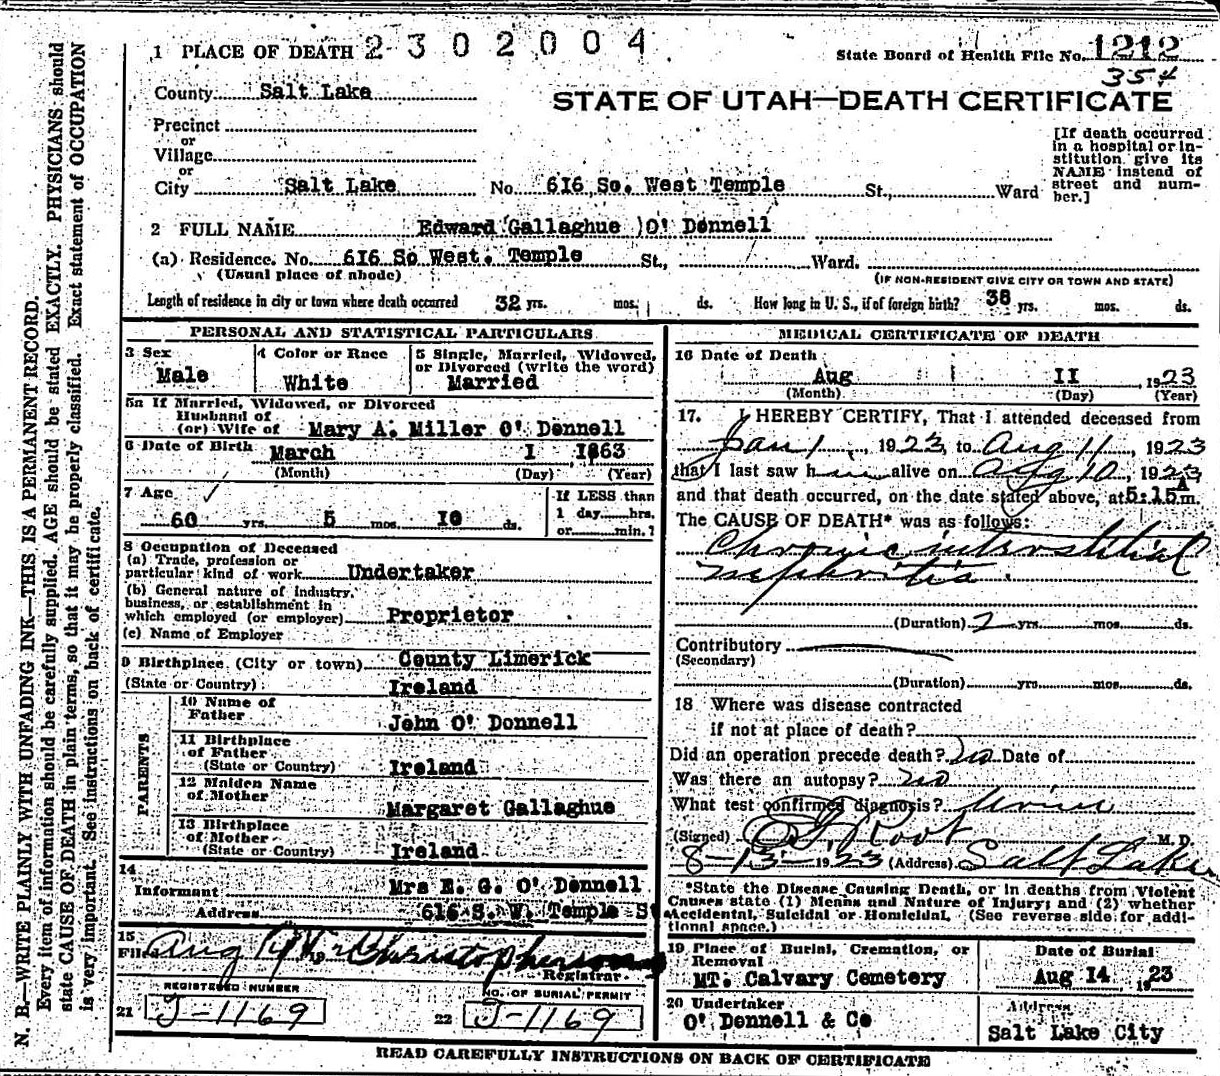 1 PLACE OF DEATH 2302004
State Board of Health File No. 1212
354
County Salt Lake
STATE OF UTAH—DEATH CERTIFICATE
Precinct
or
Village
or
City Salt Lake No. 616 So. West Temple St., Ward
[If death occurred
in a hospital or in-
stitution give its
NAME instead of
street and num-
ber.]
2 FULL NAME Edward (Gallaghue )O' Donnell
(a) Residence. No. 616 So West. Temple St., Ward.
(Usual place of abode) (IF NON-RESIDENT GIVE CITY OR TOWN AND STATE)
Length of residence in city or town where death occurred 32 yrs. mos. ds. How long in U. S., if of foreign birth? 38 yrs. mos. ds.
PERSONAL AND STATISTICAL PARTICULARS
3 Sex
Male
4 Color or Race
White
5 Single, Married, Widowed,
or Divorced (write the word)
Married
5a If Married, Widowed, or Divorced
Husband of
(or) Wife of Mary A. Miller O' Donnell
6 Date of Birth March 1 1863
(Month) (Day) (Year)
7 Age
60 yrs. 5 mos. 10 ds.
If LESS than
1 day hrs.
or min.?
8 Occupation of Deceased
(a) Trade, profession or
particular kind of work Undertaker
(b) General nature of industry,
business, or establishment in
which employed (or employer) Proprietor
(c) Name of Employer
9 Birthplace (City or town) County Limerick
(State or Country) Ireland
PARENTS
10 Name of
Father John O' Donnell
11 Birthplace
of Father
(State or Country) Ireland
12 Maiden Name
of Mother Margaret Gallaghue
13 Birthplace
of Mother
(State or Country) Ireland
14
Informant Mrs E. G. O' Donnell
Address 616 S. W. Temple St
15
Filed Aug Christopherson
Registrar
REGISTERED NUMBER
21 J-1169
NO. OF BURIAL PERMIT
22 J-1169
MEDICAL CERTIFICATE OF DEATH
16 Date of Death
Aug 11, 1923
(Month) (Day) (Year)
17. I HEREBY CERTIFY, That I attended deceased from
Jan 1, 1923, to Aug 11, 1923
that I last saw him alive on Aug 10, 1923,
and that death occurred, on the date stated above, at 5:15 A m.
The CAUSE OF DEATH* was as follows:
Chronic interstitial
nephritis.
(Duration) 2 yrs. mos. ds.
Contributory
(Secondary)
(Duration) yrs. mos. ds.
18 Where was disease contracted
if not at place of death?
Did an operation precede death? no Date of
Was there an autopsy? no
What test confirmed diagnosis? Urine
(Signed) Root M. D.
8-13-1923 (Address) Salt Lake
*State the Disease Causing Death, or in deaths from Violent
Causes state (1) Means and Nature of Injury; and (2) whether
Accidental, Suicidal or Homicidal. (See reverse side for addi-
tional space.)
19 Place of Burial, Cremation, or
Removal
MT. Calvary Cemetery
Date of Burial
Aug 14 1923
20 Undertaker
O' Donnell & Co
Address
Salt Lake City
READ CAREFULLY INSTRUCTIONS ON BACK OF CERTIFICATE
N. B.—WRITE PLAINLY WITH UNFADING INK—THIS IS A PERMANENT RECORD.
Every item of information should be carefully supplied. AGE should be stated EXACTLY. PHYSICIANS should
state CAUSE OF DEATH in plain terms, so that it may be properly classified. Exact statement of OCCUPATION
is very important. See instructions on back of certificate.